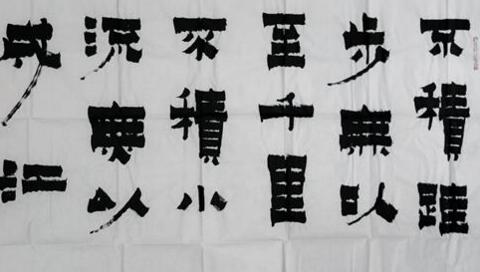 不積跬
步無以
至千里
不積小
流無以
成江